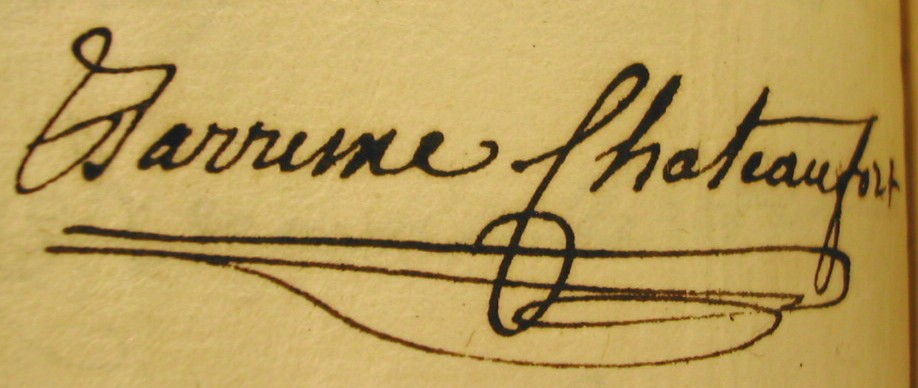 Barreme Chateaufort